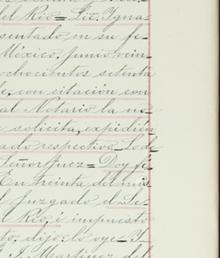 del Rio = Lic. Igna-
sentado en su fe
México, Junio vein
ochocientos setenta
de, con citación con
al Notario la no
e solicita, expidién
ado respectivo. Lo de
Señor Juez = Doy fé
En treinta del mis
l Juzgado el Se
Rio, é impuesto
to, dijo: lo oye = Y
J. Martinez del